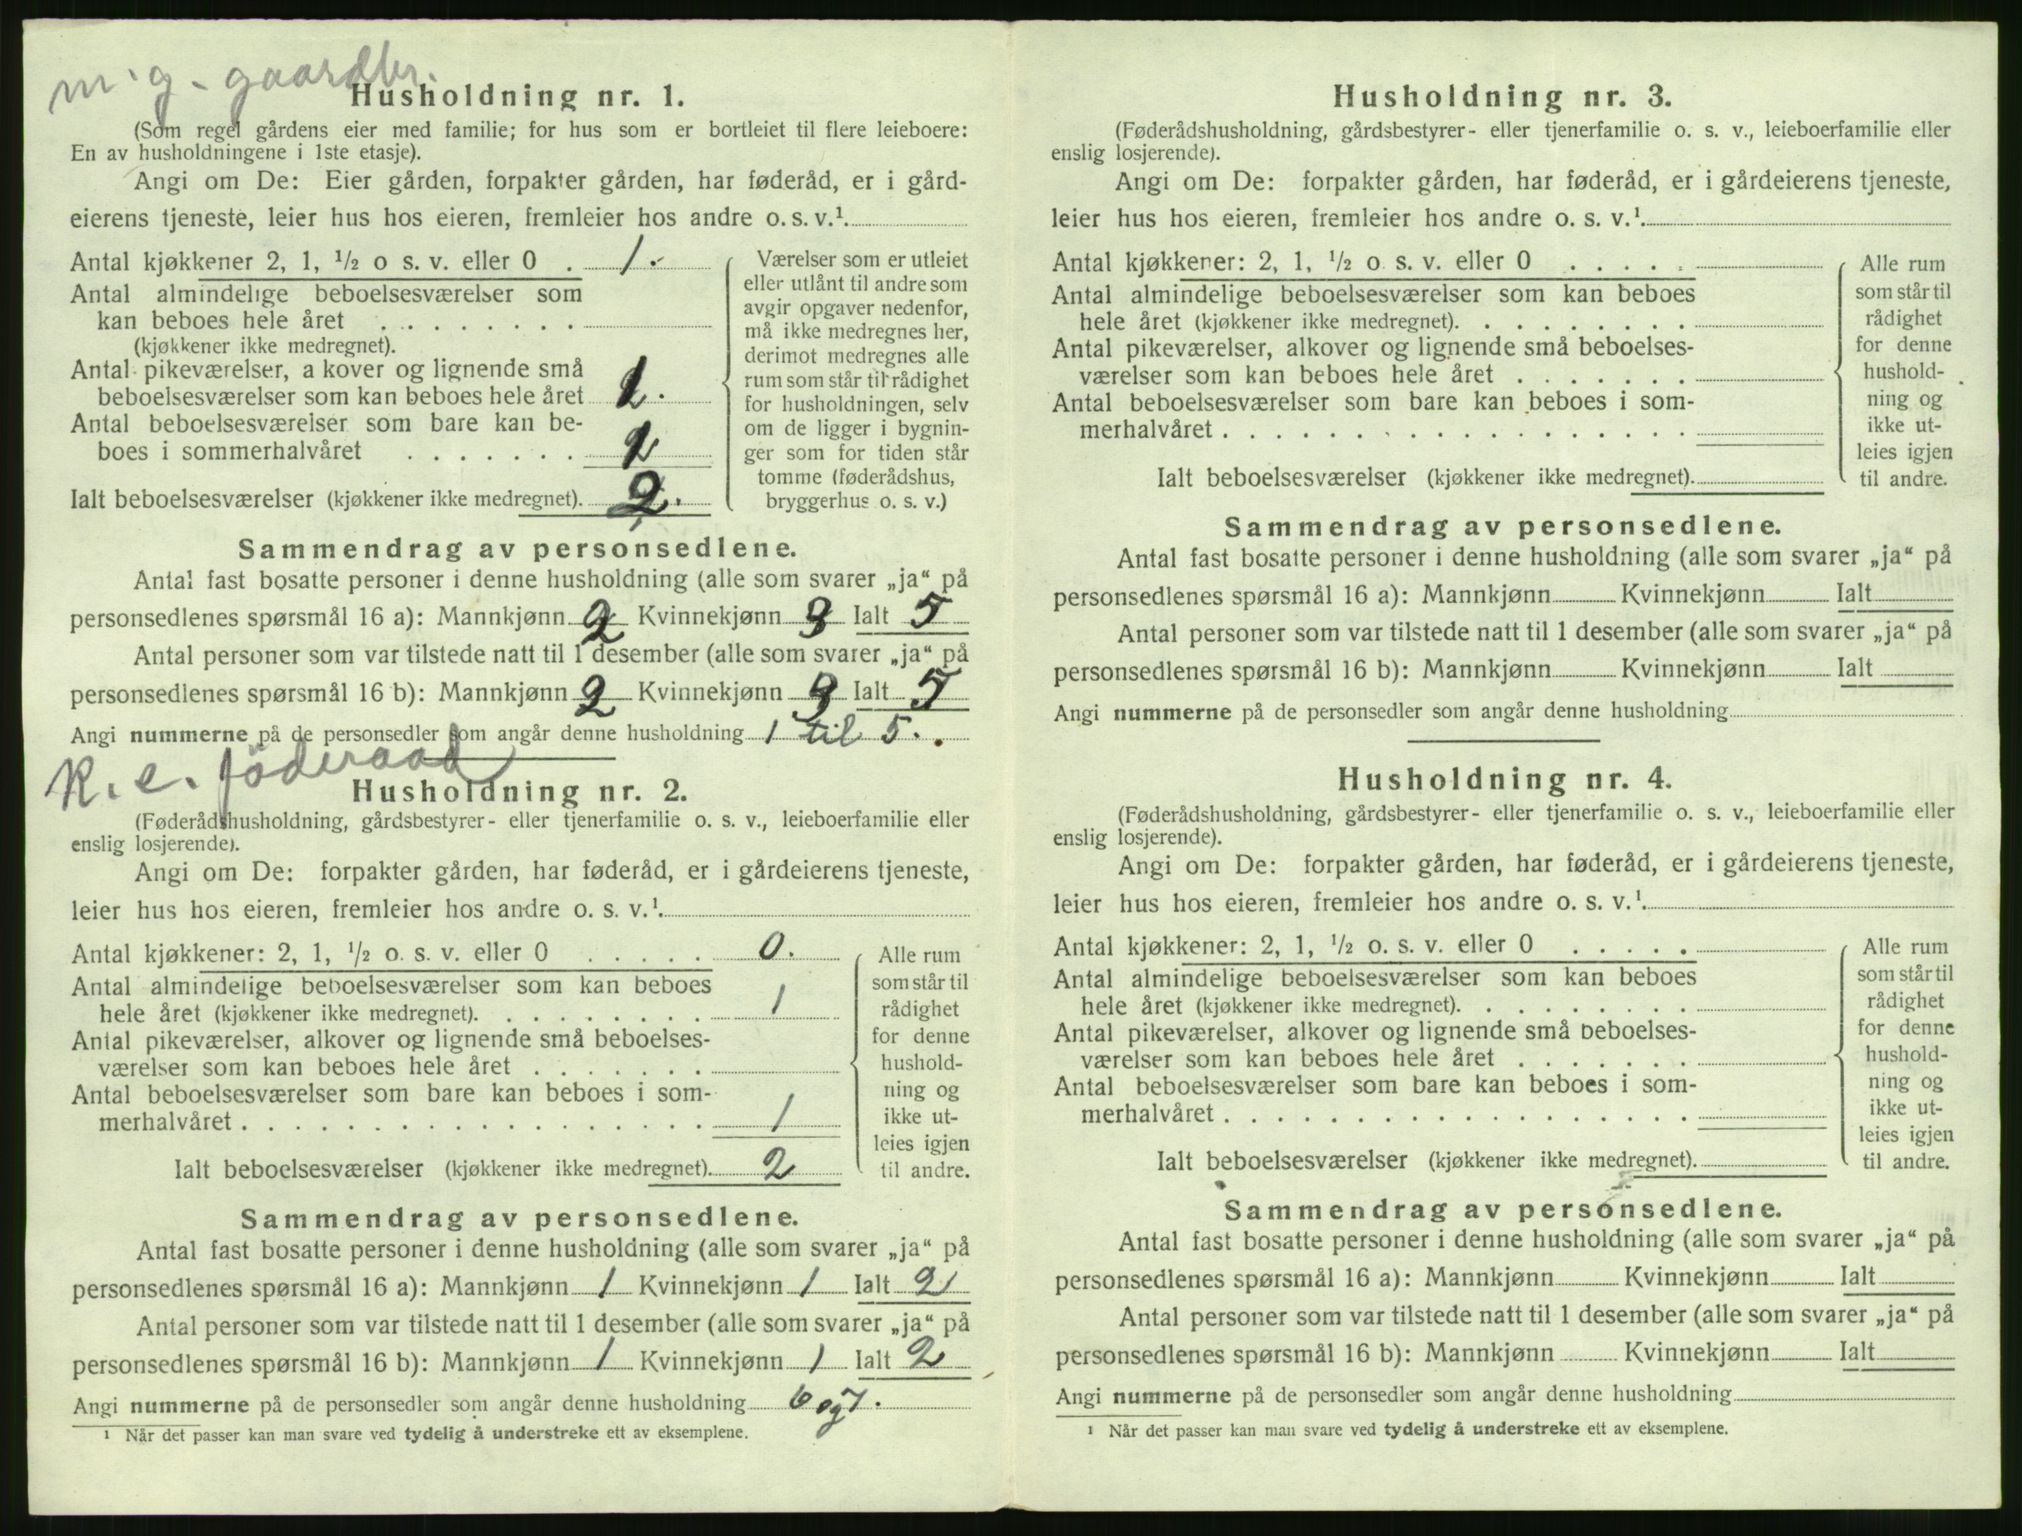 m. g. gaardbr.
Husholdning nr. 1.
(Som regel gårdens eier med familie; for hus som er bortleiet til flere leieboere:
En av husholdningene i 1ste etasje).
Angi om De: Eier gården, forpakter gården, har føderåd, er i gård-
eierens tjeneste, leier hus hos eieren, fremleier hos andre o. s. v.¹.
Antal kjøkkener 2, 1, ½ o s. v. eller 0 . 1.
Antal almindelige beboelsesværelser som
kan beboes hele året . . . . . . . .
(kjøkkener ikke medregnet).
Antal pikeværelser, a kover og lignende små
beboelsesværelser som kan beboes hele året 1.
Antal beboelsesværelser som bare kan be-
boes i sommerhalvåret . . . . . . . 1
Ialt beboelsesværelser (kjøkkener ikke medregnet). 2.
Værelser som er utleiet
eller utlånt til andre som
avgir opgaver nedenfor,
må ikke medregnes her,
derimot medregnes alle
rum som står til rådighet
for husholdningen, selv
om de ligger i bygnin-
ger som for tiden står
tomme (føderådshus,
bryggerhus o. s. v.)
Sammendrag av personsedlene.
Antal fast bosatte personer i denne husholdning (alle som svarer „ja“ på
personsedlenes spørsmål 16 a): Mannkjønn 2 Kvinnekjønn 3 Ialt 5
Antal personer som var tilstede natt til 1 desember (alle som svarer „ja“ på
personsedlenes spørsmål 16 b): Mannkjønn 2 Kvinnekjønn 3 Ialt 5
Angi nummerne på de personsedler som angår denne husholdning 1 til 5.
K. e. föderaad
Husholdning nr. 2.
(Føderådshusholdning, gårdsbestyrer- eller tjenerfamilie o. s. v., leieboerfamilie eller
enslig losjerende).
Angi om De: forpakter gården, har føderåd, er i gårdeierens tjeneste,
leier hus hos eieren, fremleier hos andre o. s. v.¹.
Antal kjøkkener: 2, 1, ½ o. s. v. eller 0 . . . . . 0.
Antal almindelige beboelsesværelser som kan beboes
hele året (kjøkkener ikke medregnet). . . . . . . . . 1
Antal pikeværelser, alkover og lignende små beboelses-
værelser som kan beboes hele året . . . . . . .
Antal beboelsesværelser som bare kan beboes i som-
merhalvåret . . . . . . . . . . . . . . . . . . 1
Ialt beboelsesværelser (kjøkkener ikke medregnet). 2
Alle rum
som står til
rådighet
for denne
hushold-
ning og
ikke ut-
leies igjen
til andre.
Sammendrag av personsedlene.
Antal fast bosatte personer i denne husholdning (alle som svarer „ja“ på
personsedlenes spørsmål 16 a): Mannkjønn 1 Kvinnekjønn 1 Ialt 2
Antal personer som var tilstede natt til 1 desember (alle som svarer „ja“ på
personsedlenes spørsmål 16 b): Mannkjønn 1 Kvinnekjønn 1 Ialt 2
Angi nummerne på de personsedler som angår denne husholdning 6 og 7.
¹ Når det passer kan man svare ved tydelig å understreke ett av eksemplene.
Husholdning nr. 3.
(Føderådshusholdning, gårdsbestyrer- eller tjenerfamilie o. s. v., leieboerfamilie eller
enslig losjerende).
Angi om De: forpakter gården, har føderåd, er i gårdeierens tjeneste,
leier hus hos eieren, fremleier hos andre o. s. v.¹.
Antal kjøkkener: 2, 1, ½ o. s. v. eller 0 . . . . .
Antal almindelige beboelsesværelser som kan beboes
hele året (kjøkkener ikke medregnet). . . . . . . . .
Antal pikeværelser, alkover og lignende små beboelses-
værelser som kan beboes hele året . . . . . . .
Antal beboelsesværelser som bare kan beboes i som-
merhalvåret . . . . . . . . . . . . . . . . . .
Ialt beboelsesværelser (kjøkkener ikke medregnet).
Alle rum
som står til
rådighet
for denne
hushold-
ning og
ikke ut-
leies igjen
til andre.
Sammendrag av personsedlene.
Antal fast bosatte personer i denne husholdning (alle som svarer „ja“ på
personsedlenes spørsmål 16 a): Mannkjønn Kvinnekjønn Ialt
Antal personer som var tilstede natt til 1 desember (alle som svarer „ja“ på
personsedlenes spørsmål 16 b): Mannkjønn Kvinnekjønn Ialt
Angi nummerne på de personsedler som angår denne husholdning
Husholdning nr. 4.
(Føderådshusholdning, gårdsbestyrer- eller tjenerfamilie o. s. v., leieboerfamilie eller
enslig losjerende).
Angi om De: forpakter gården, har føderåd, er i gårdeierens tjeneste,
leier hus hos eieren, fremleier hos andre o. s. v.¹.
Antal kjøkkener: 2, 1, ½ o. s. v. eller 0 . . . . .
Antal almindelige beboelsesværelser som kan beboes
hele året (kjøkkener ikke medregnet). . . . . . . . .
Antal pikeværelser, alkover og lignende små beboelses-
værelser som kan beboes hele året . . . . . . .
Antal beboelsesværelser som bare kan beboes i som-
merhalvåret . . . . . . . . . . . . . . . . . .
Ialt beboelsesværelser (kjøkkener ikke medregnet).
Alle rum
som står til
rådighet
for denne
hushold-
ning og
ikke ut-
leies igjen
til andre.
Sammendrag av personsedlene.
Antal fast bosatte personer i denne husholdning (alle som svarer „ja“ på
personsedlenes spørsmål 16 a): Mannkjønn Kvinnekjønn Ialt
Antal personer som var tilstede natt til 1 desember (alle som svarer „ja“ på
personsedlenes spørsmål 16 b): Mannkjønn Kvinnekjønn Ialt
Angi nummerne på de personsedler som angår denne husholdning
¹ Når det passer kan man svare ved tydelig å understreke ett av eksemplene.